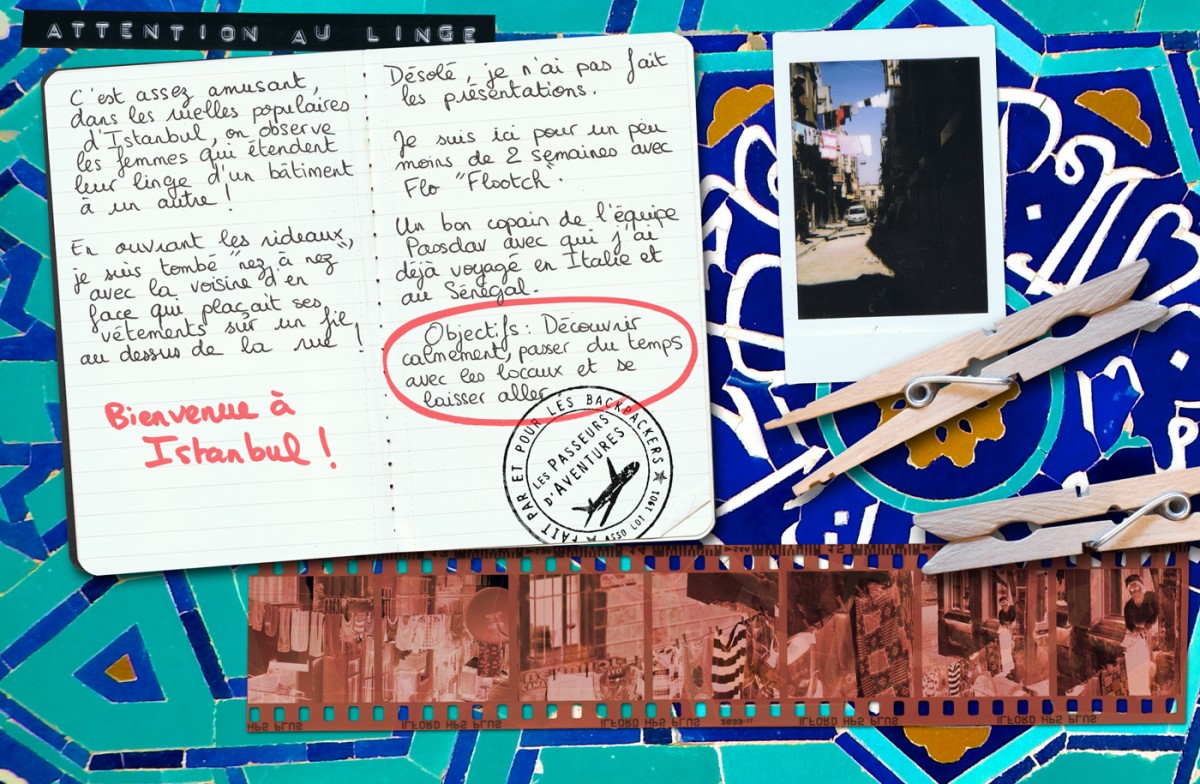 ATTENTION AU LINGE
C'est assez amusant,
dans les ruelles populaires
d'Istanbul, on observe
les femmes qui étendent
leur linge d'un bâtiment
à un autre !
En ouvrant les rideaux,
je suis tombé "nez à nez"
avec la voisine d'en
face qui plaçait ses
vêtements sur un fil,
au dessus de la rue !
Bienvenue à
Istanbul !
Désolé, je n'ai pas fait
les présentations.
Je suis ici pour un peu
moins de 2 semaines avec
Flo "Flootch".
Un bon copain de l'équipe
Paosdav avec qui j'ai
déjà voyagé en Italie et
au Sénégal.
Objectifs : Découvrir
calmement, passer du temps
avec les locaux et se
laisser aller
FAIT PAR ET POUR LES BACKPACKERS
LES PASSEURS
D'AVENTURES
ASSO LOI 1901
HP5 PLUS
ILFORD HP5 PLUS
ILFORD HP5 PLUS
ILFORD HP5 PLUS
ILFORD HP5 PLUS